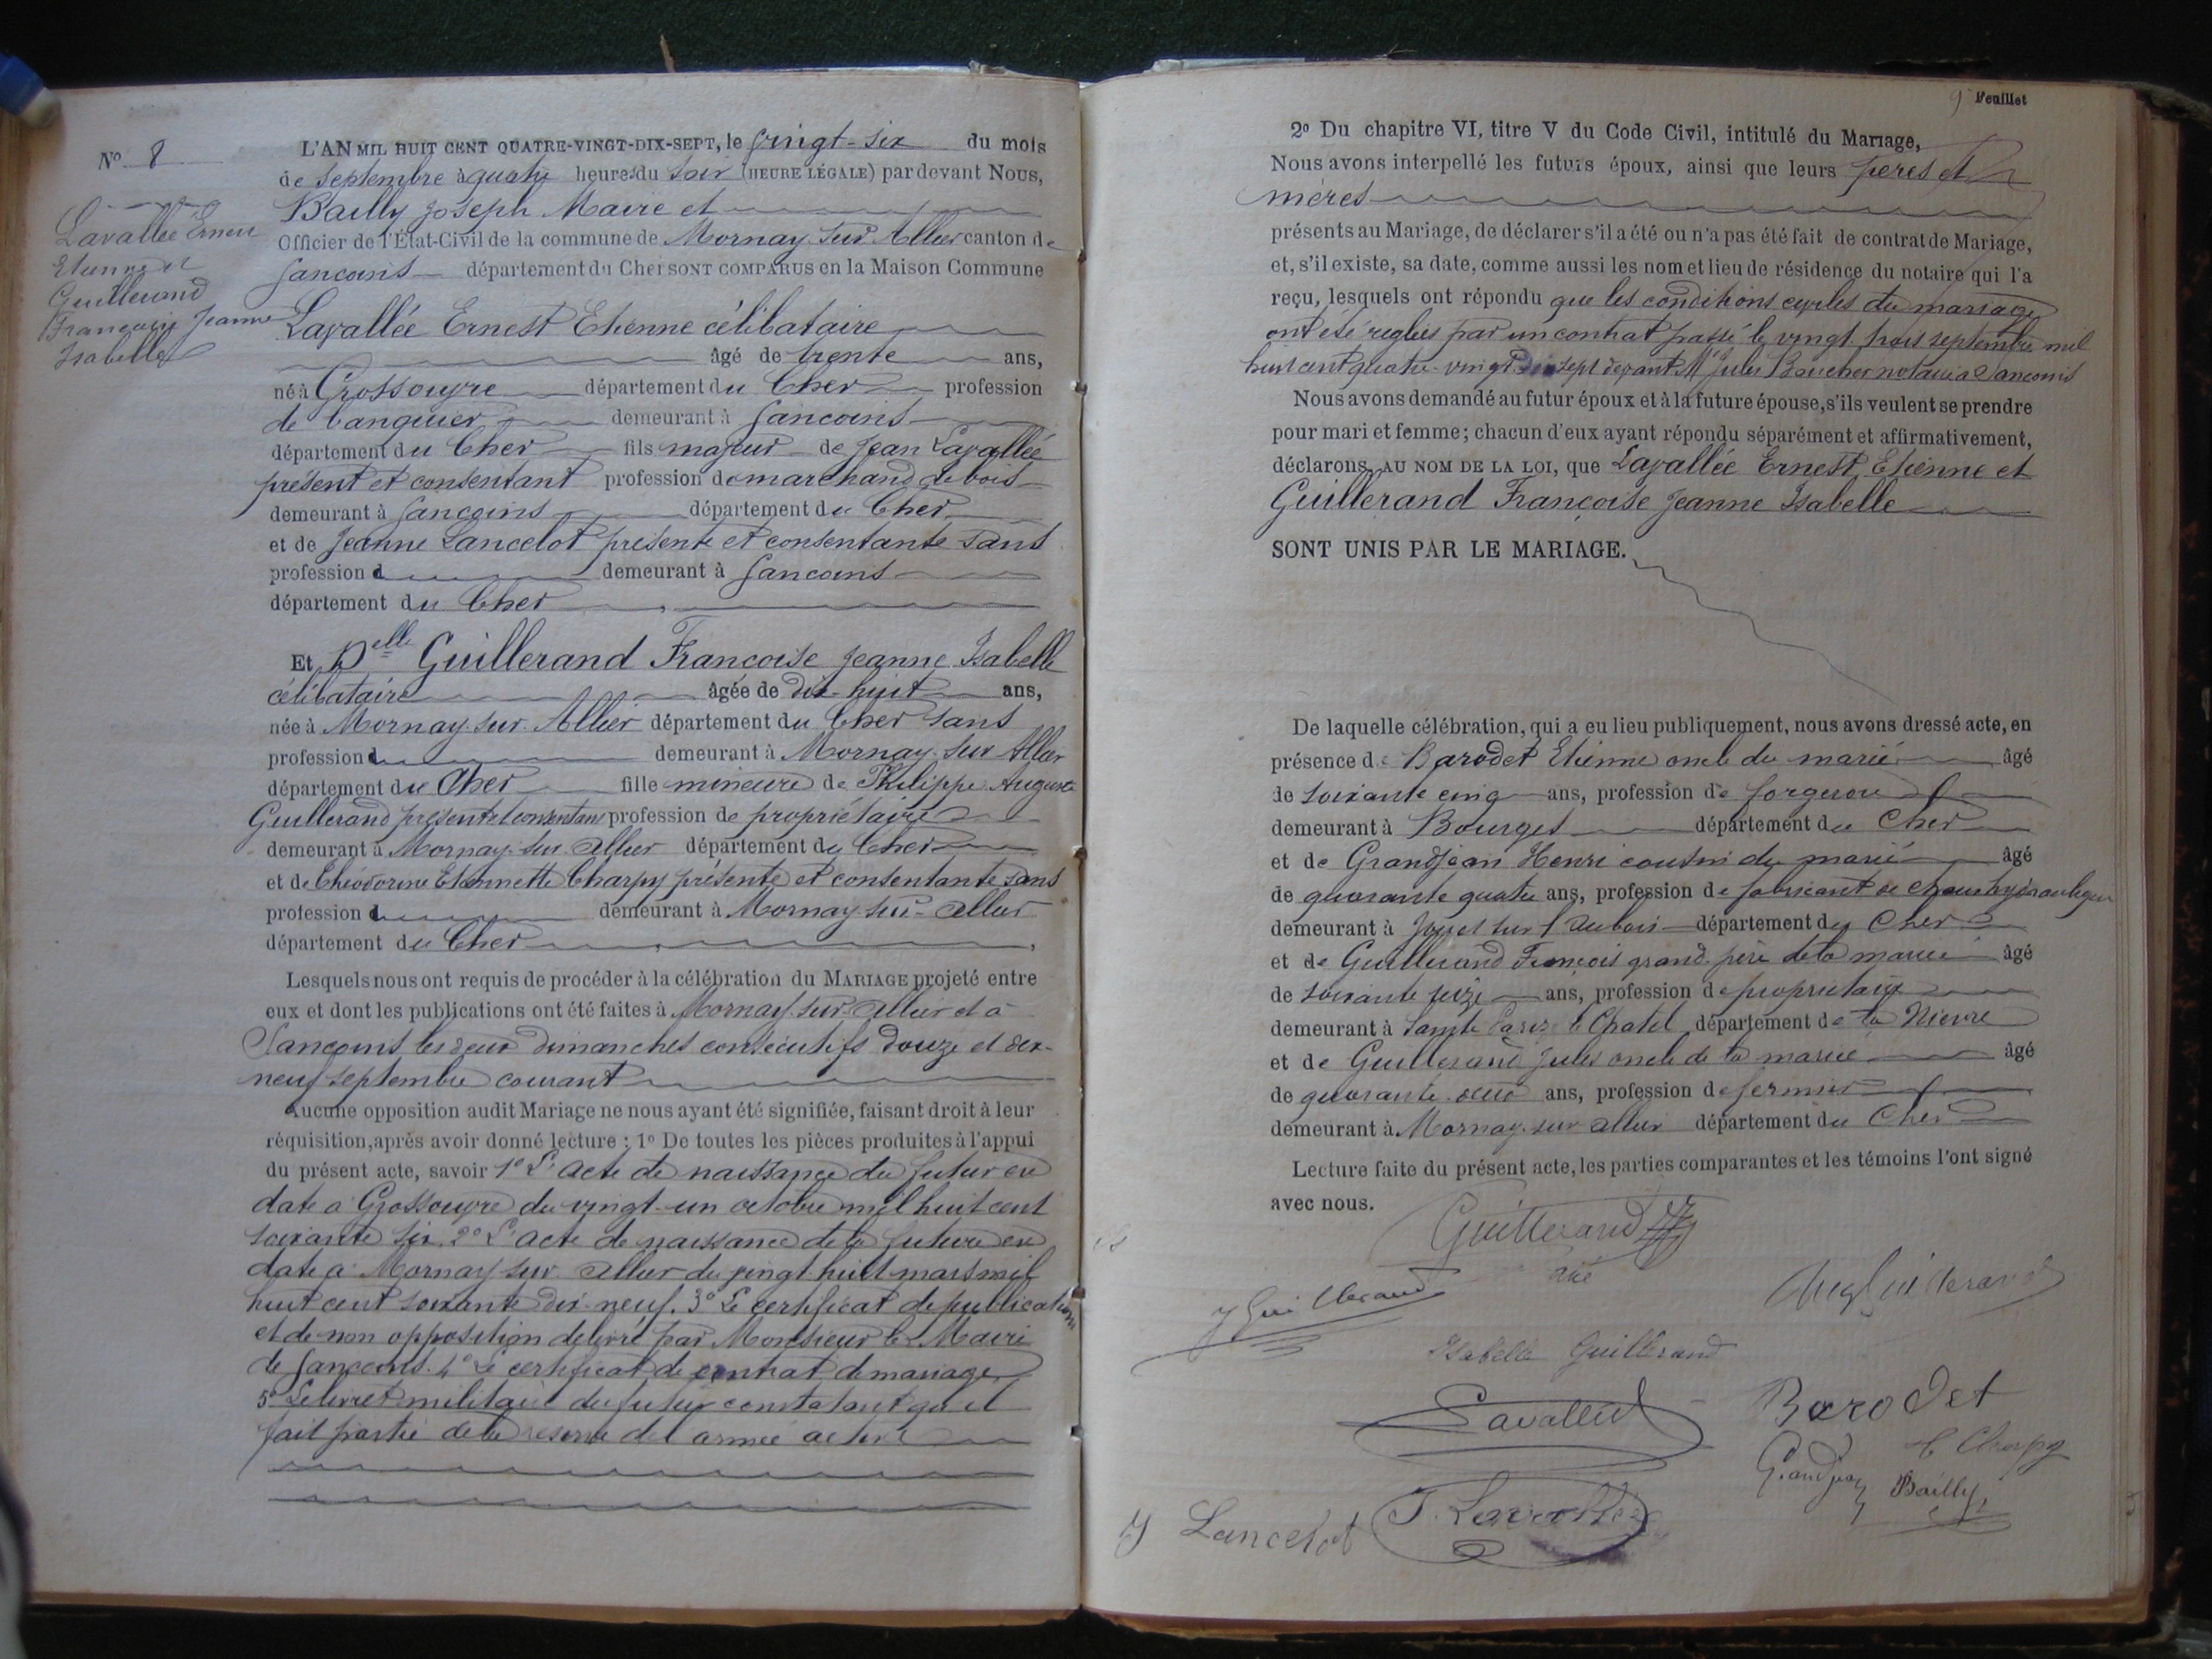 Nº 8
Lavallée Ernest
Etienne et
Guillerand
Françoise Jeanne
Isabelle
L'AN MIL HUIT CENT QUATRE-VINGT-DIX-SEPT, le vingt-six du mois
de Septembre à quatre heures du soir (HEURE LÉGALE) par devant NOUS,
Bailly Joseph Maire et
Officier de l'État-Civil de la commune de Mornay sur Allier canton de
Sancoins département du Cher SONT COMPARUS en la Maison Commune
Lavallée Ernest Etienne célibataire
âgé de trente ans,
né à Grossouvre département du Cher profession
de banquier demeurant à Sancoins
département du Cher fils majeur de Jean Lavallée
présent et consentant profession de marchand de bois
demeurant à Sancoins département du Cher
et de Jeanne Lancelot présente et consentante sans
profession d demeurant à Sancoins
département du Cher
Et Delle Guillerand Françoise Jeanne Isabelle
célibataire âgée de dix-huit ans,
née à Mornay-sur-Allier département du Cher sans
profession d demeurant à Mornay-sur Allier
département du Cher fille mineure de Philippe Auguste
Guillerand présent et consentant profession de propriétaire
demeurant à Mornay-sur-Allier département du Cher
et de Théodorine Etiennette Charpy présente et consentante sans
profession d demeurant à Mornay-sur-Allier
département du Cher
Lesquels nous ont requis de procéder à la célébration du MARIAGE projeté entre
eux et dont les publications ont été faites à Mornay-sur-Allier et à
Sancoins les deux dimanches consécutifs douze et dix-
neuf septembre courant
Aucune opposition audit Mariage ne nous ayant été signifiée, faisant droit à leur
réquisition, après avoir donné lecture : 1º De toutes les pièces produites à l'appui
du présent acte, savoir 1º L'acte de naissance du futur en
date à Grossouvre du vingt-un octobre mil huit cent
soixante six. 2º L'acte de naissance de la future en
date à Mornay sur Allier du vingt huit mars mil
huit cent soixante dix-neuf. 3º Le certificat de publications
et de non opposition délivré par Monsieur le Maire
de Sancoins. 4º Le certificat de contrat de mariage
5º Le livret militaire du futur constatant qu'il
fait partie de la réserve de l'armée active
9 Feuillet
2º Du chapitre VI, titre V du Code Civil, intitulé du Mariage,
Nous avons interpellé les futurs époux, ainsi que leurs pères et
mères
présents au Mariage, de déclarer s'il a été ou n'a pas été fait de contrat de Mariage,
et, s'il existe, sa date, comme aussi les nom et lieu de résidence du notaire qui l'a
reçu, lesquels ont répondu que les conditions civiles du mariage
ont été réglées par un contrat passé le vingt trois septembre mil
huit cent quatre-vingt dix sept devant Me Jules Boucher notaire à Sancoins
Nous avons demandé au futur époux et à la future épouse, s'ils veulent se prendre
pour mari et femme ; chacun d'eux ayant répondu séparément et affirmativement,
déclarons, AU NOM DE LA LOI, que Lavallée Ernest, Etienne et
Guillerand Françoise Jeanne Isabelle
SONT UNIS PAR LE MARIAGE.
De laquelle célébration, qui a eu lieu publiquement, nous avons dressé acte, en
présence de Barodet Etienne oncle du marié âgé
de soixante cinq ans, profession de forgeron
demeurant à Bourges département du Cher
et de Grandjean Henri cousin du marié âgé
de quarante quatre ans, profession de fabricant de chaux hydraulique
demeurant à Jouet sur l'Aubois département du Cher
et de Guillerand François grand-père de la mariée âgé
de soixante seize ans, profession de propriétaire
demeurant à Sainte Parize le Chatel département de la Nièvre
et de Guillerand Jules oncle de la mariée âgé
de quarante deux ans, profession de fermier
demeurant à Mornay-sur-Allier département du Cher
Lecture faite du présent acte, les parties comparantes et les témoins l'ont signé
avec nous.
Guillerand
J Guillerand
Aug Guillerand
Isabelle Guillerand
Lavallée
Barodet
Charpy
Grandjean
Bailly
J Lancelot
J. Lavallée